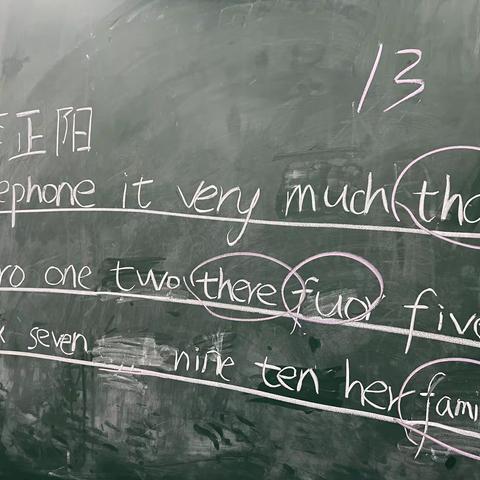 13
正阳
ephone it very much tha
ro one two there fuor five
x seven nine ten her fami